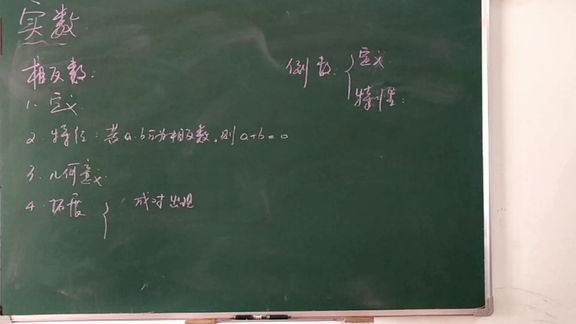 实数
相反数:
1. 定义
2. 特征:若a.b互为相反数,则a+b=0
3. 几何意义
4. 拓展{ 成对出现
倒数:{ 定义
特性: